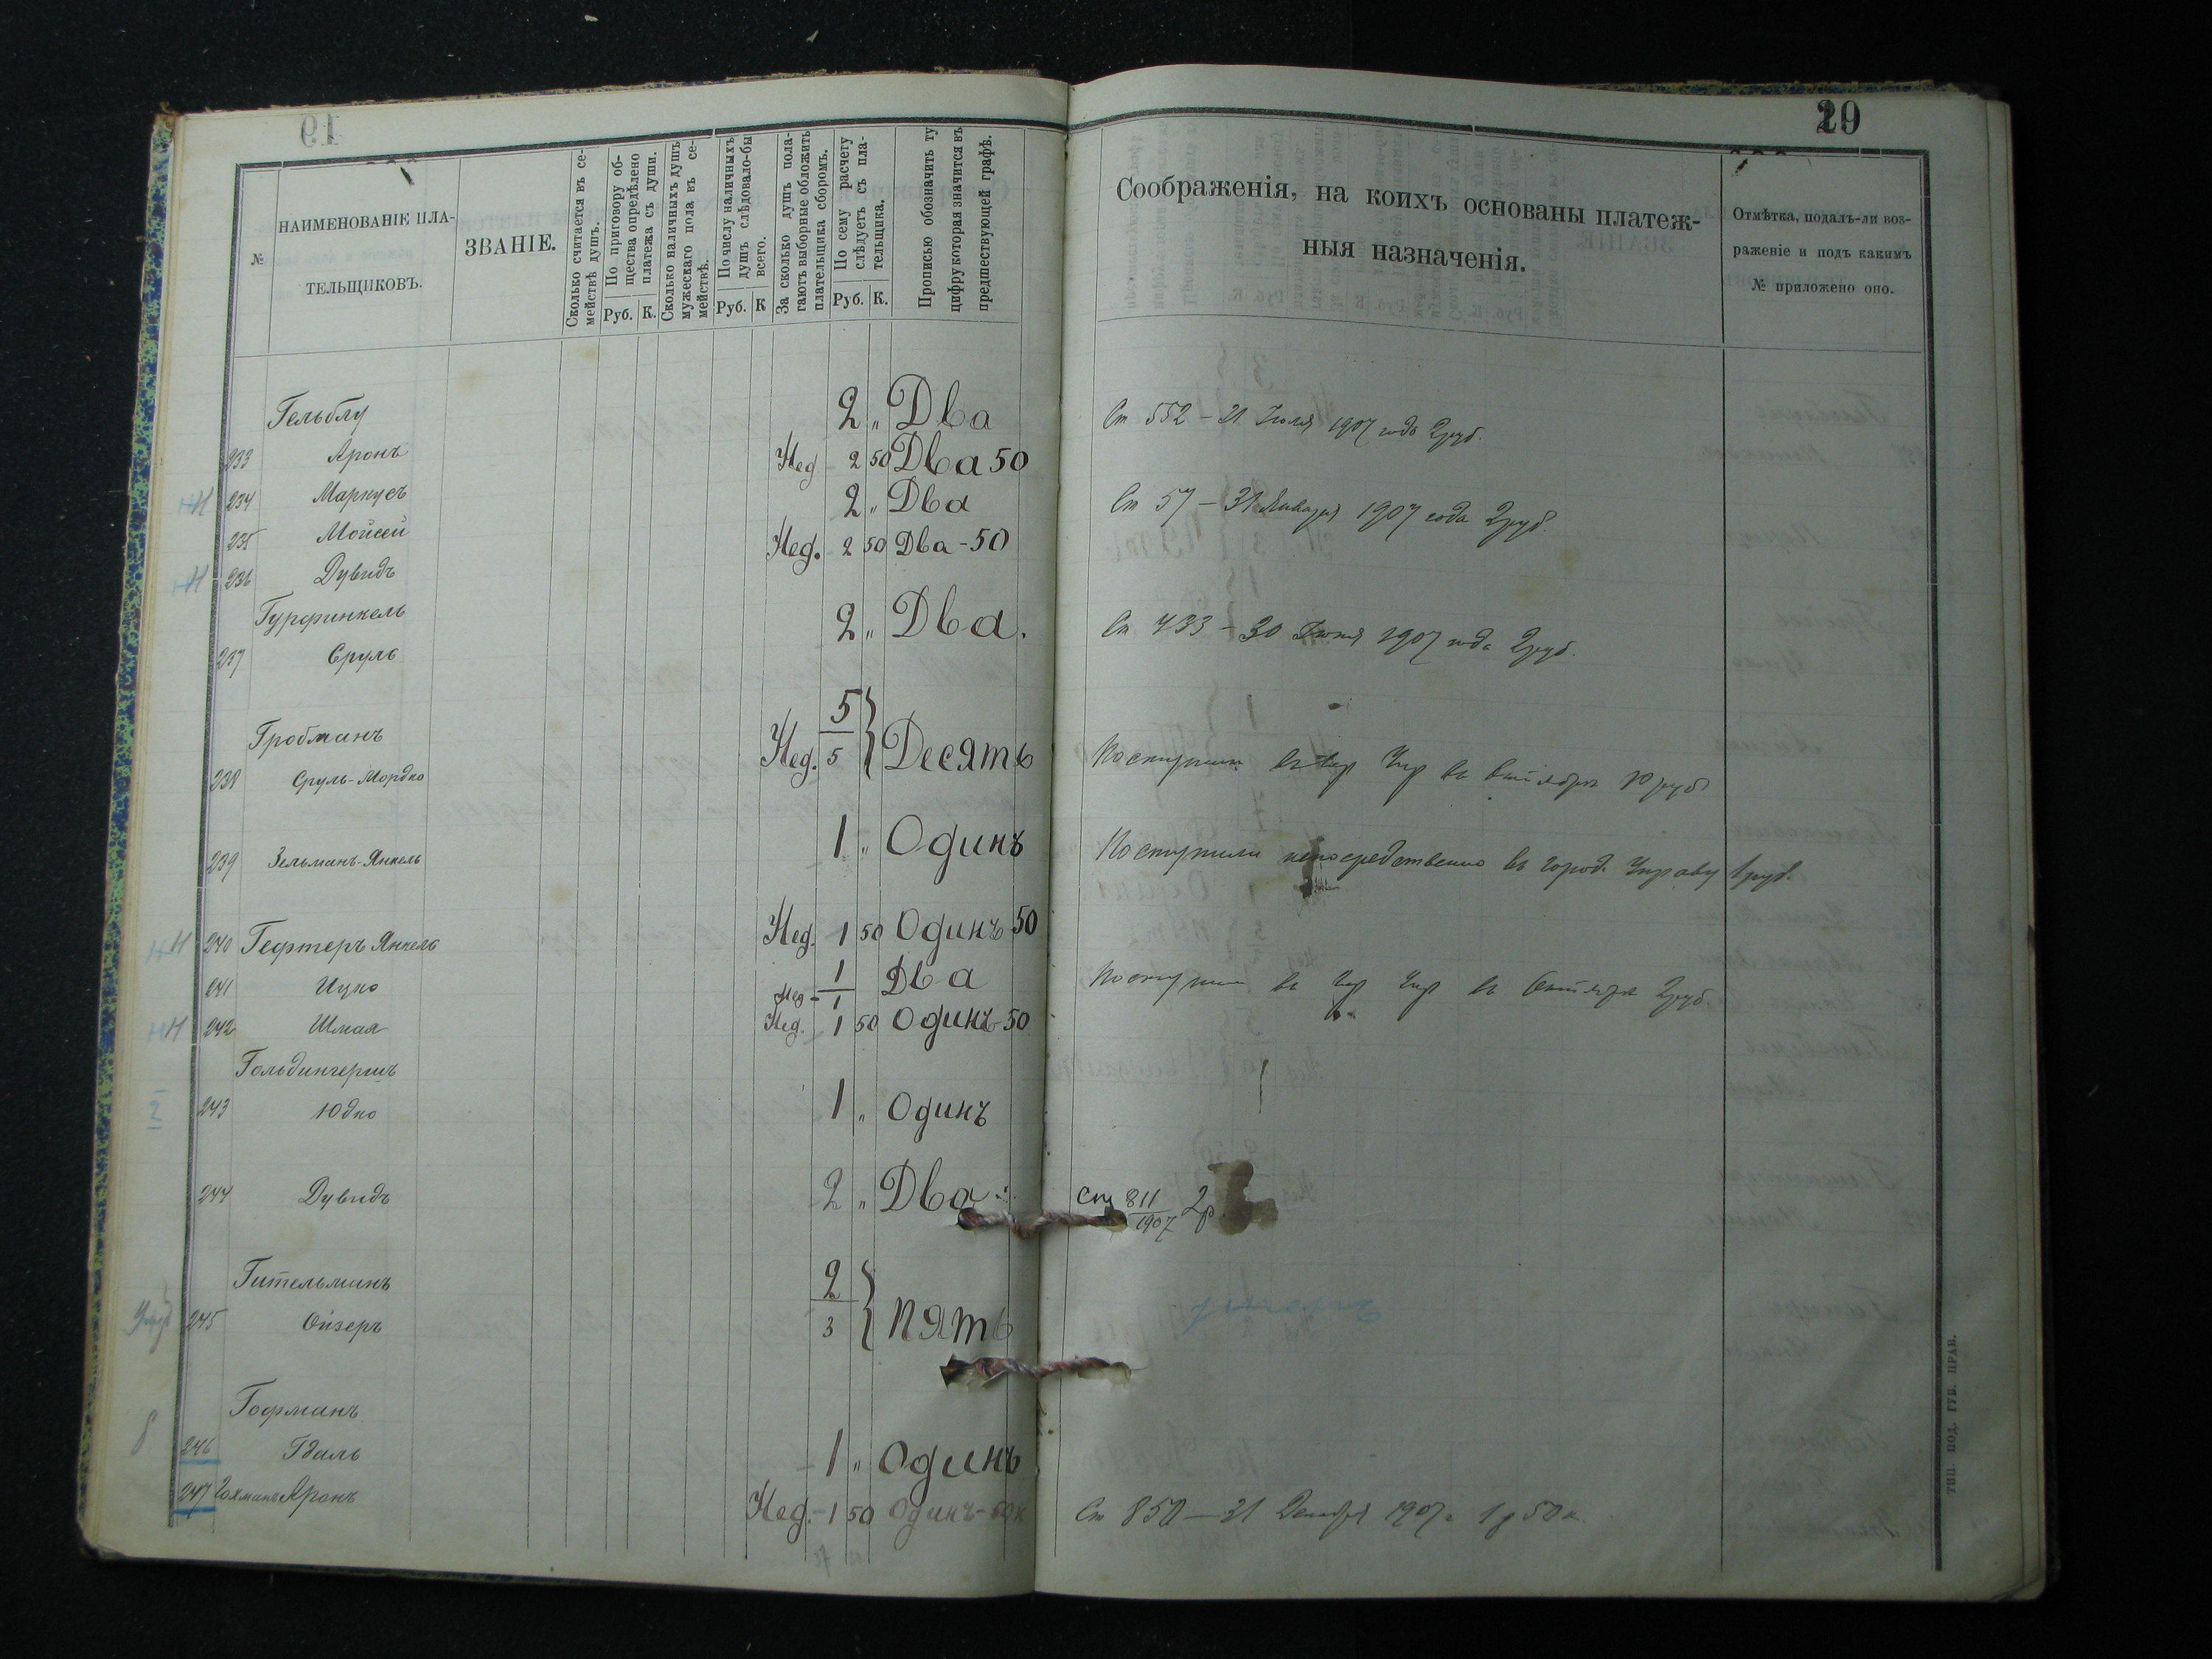 19
29
№
НАИМЕНОВАНІЕ ПЛА-
ТЕЛЬЩИКОВЪ.
ЗВАНІЕ.
Сколько считается въ се-
мействѣ душъ.
По приговору об-
щества опредѣлено
платежа съ души.
Руб. К.
Сколько наличныхъ душъ
мужескаго пола въ се-
мействѣ.
По числу наличныхъ
душъ слѣдовало-бы
всего.
Руб. К
За сколько душъ пола-
гаютъ выборные обложить
плательщика сборомъ.
По сему расчету
слѣдуетъ съ пла-
тельщика.
Руб. К.
Прописью обозначить ту
цифру которая значится въ
предшествующей графѣ.
Соображенія, на коихъ основаны платеж-
ныя назначенія.
Отмѣтка, подалъ-ли воз-
раженіе и подъ какимъ
№ приложено оно.
Гельблу 2 " Два Ст 552 – 21 Іюля 1907 года 2 руб.
233 Аронъ Нед 2 50 Два 50
234 Маркусъ 2 " Два Ст 57 – 31 Января 1907 года 2 руб.
235 Мойсей Нед. 2 50 Два-50
236 Дувидъ
Гурфинкель 2 " Два. Ст 433 – 30 Іюня 1907 года 2 руб.
237 Сруль
Гробманъ 5
238 Сруль-Мордко Нед. 5 Десять Поступили въ Гор Упр въ Октябрѣ 10 руб
239 Зельманъ-Янкель 1 " Одинъ Поступили непосредственно въ город. Управу 1 руб.
240 Гефтеръ Янкель Нед. 1 50 Одинъ 50
241 Ицко 1 Нед – 1 Два Поступили въ Гор Упр въ Октябрѣ 2 руб.
242 Шмая Нед. 1 50 Одинъ 50
Гольдингершъ
2 243 Юдко 1 " Одинъ
244 Дувидъ 2 " Два Ст 811/1907 2р
Гительманъ 2
245 Ойзеръ 3 Пять
Гофманъ
8 246 Гдаль 1 " Одинъ
247 Гохманъ Аронъ Нед. – 1 50 Одинъ-50к Ст 850 – 31 Декабря 1907 г 1 р 50 к.
ТИП. ПОД. ГУБ. ПРАВ.